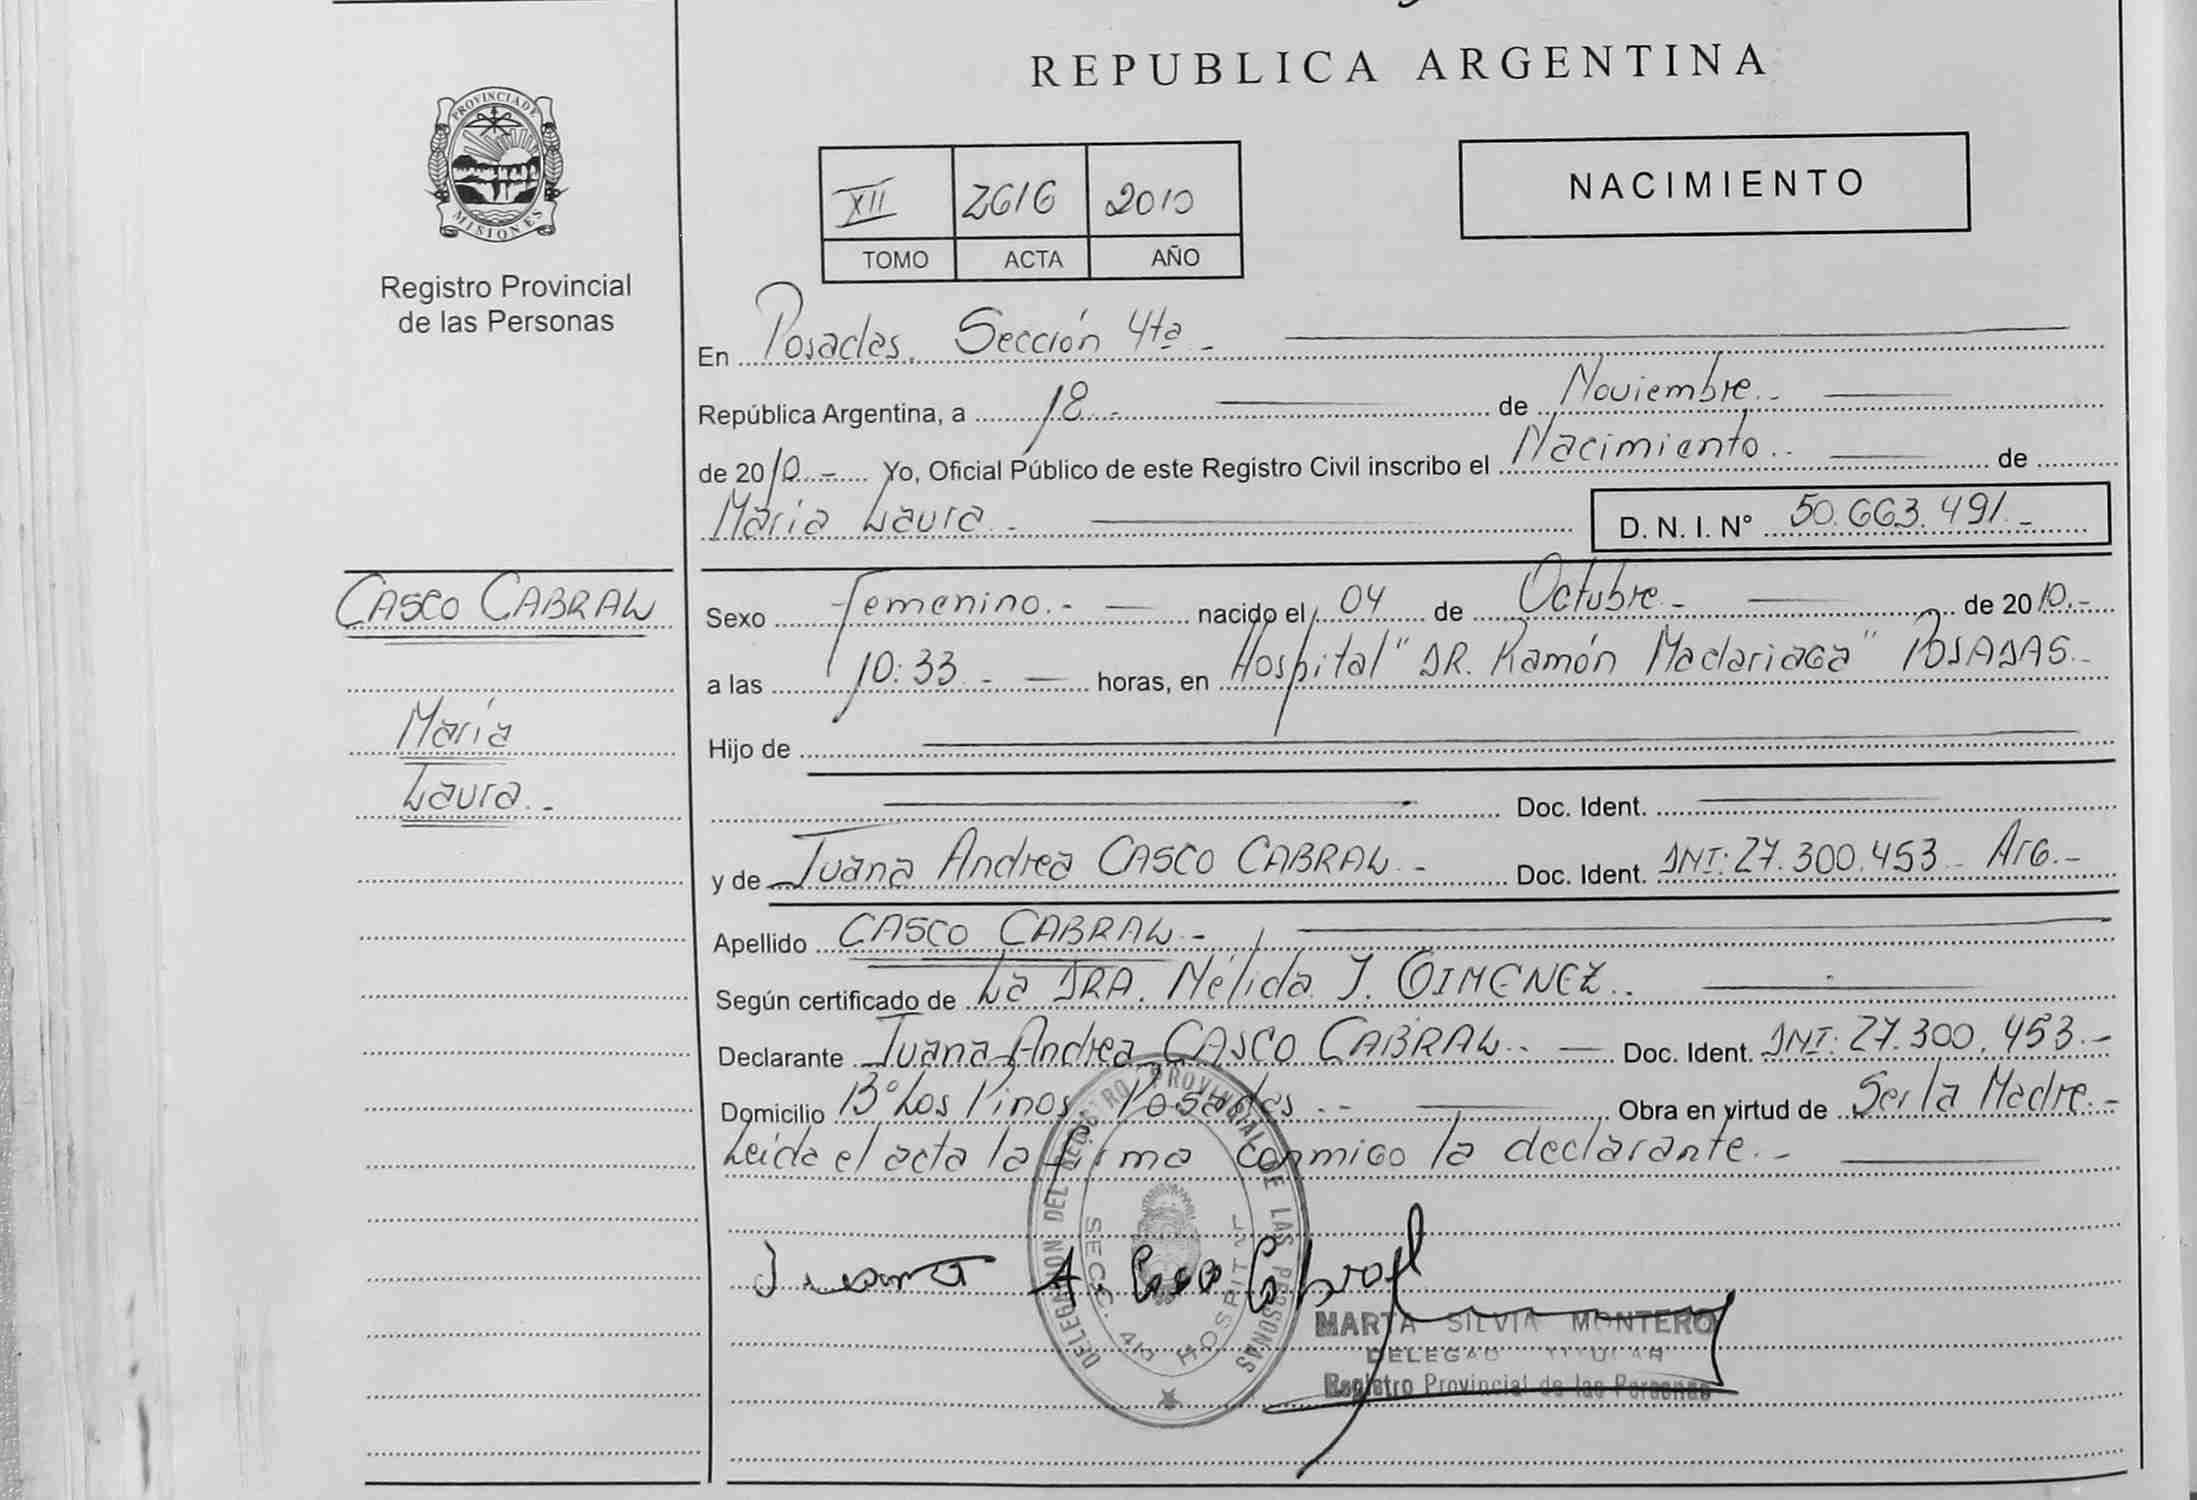 REPUBLICA ARGENTINA
PROVINCIA DE MISIONES
Registro Provincial
de las Personas
XII 2616 2010
TOMO ACTA AÑO
NACIMIENTO
En Posadas. Sección 4ta -
República Argentina, a 18.- de Noviembre.-
de 2010.- Yo, Oficial Público de este Registro Civil inscribo el Nacimiento.- de
María Laura.- D. N. I. Nº 50.663.491.-
CASCO CABRAL
María
Laura.-
Sexo Femenino.- nacido el 04 de Octubre.- de 2010.-
a las 10:33.- horas, en Hospital "DR. Ramón Madariaga" POSADAS.-
Hijo de
Doc. Ident.
y de Juana Andrea CASCO CABRAL.- Doc. Ident. DNI: 27.300.453.- Arg.-
Apellido CASCO CABRAL.-
Según certificado de La DRA. Nélida J. GIMENEZ.-
Declarante Juana Andrea CASCO CABRAL.- Doc. Ident. DNI: 27.300.453.-
Domicilio Bº Los Pinos Posadas.- Obra en virtud de Ser la Madre.-
Leída el acta la firma conmigo la declarante.-
DELEGACION DEL REGISTRO PROVINCIAL DE LAS PERSONAS
SECC. 4ta HOSPITAL
Juana A Casco Cabral
MARTA SILVIA MONTERO
DELEGADO TITULAR
Registro Provincial de las Personas